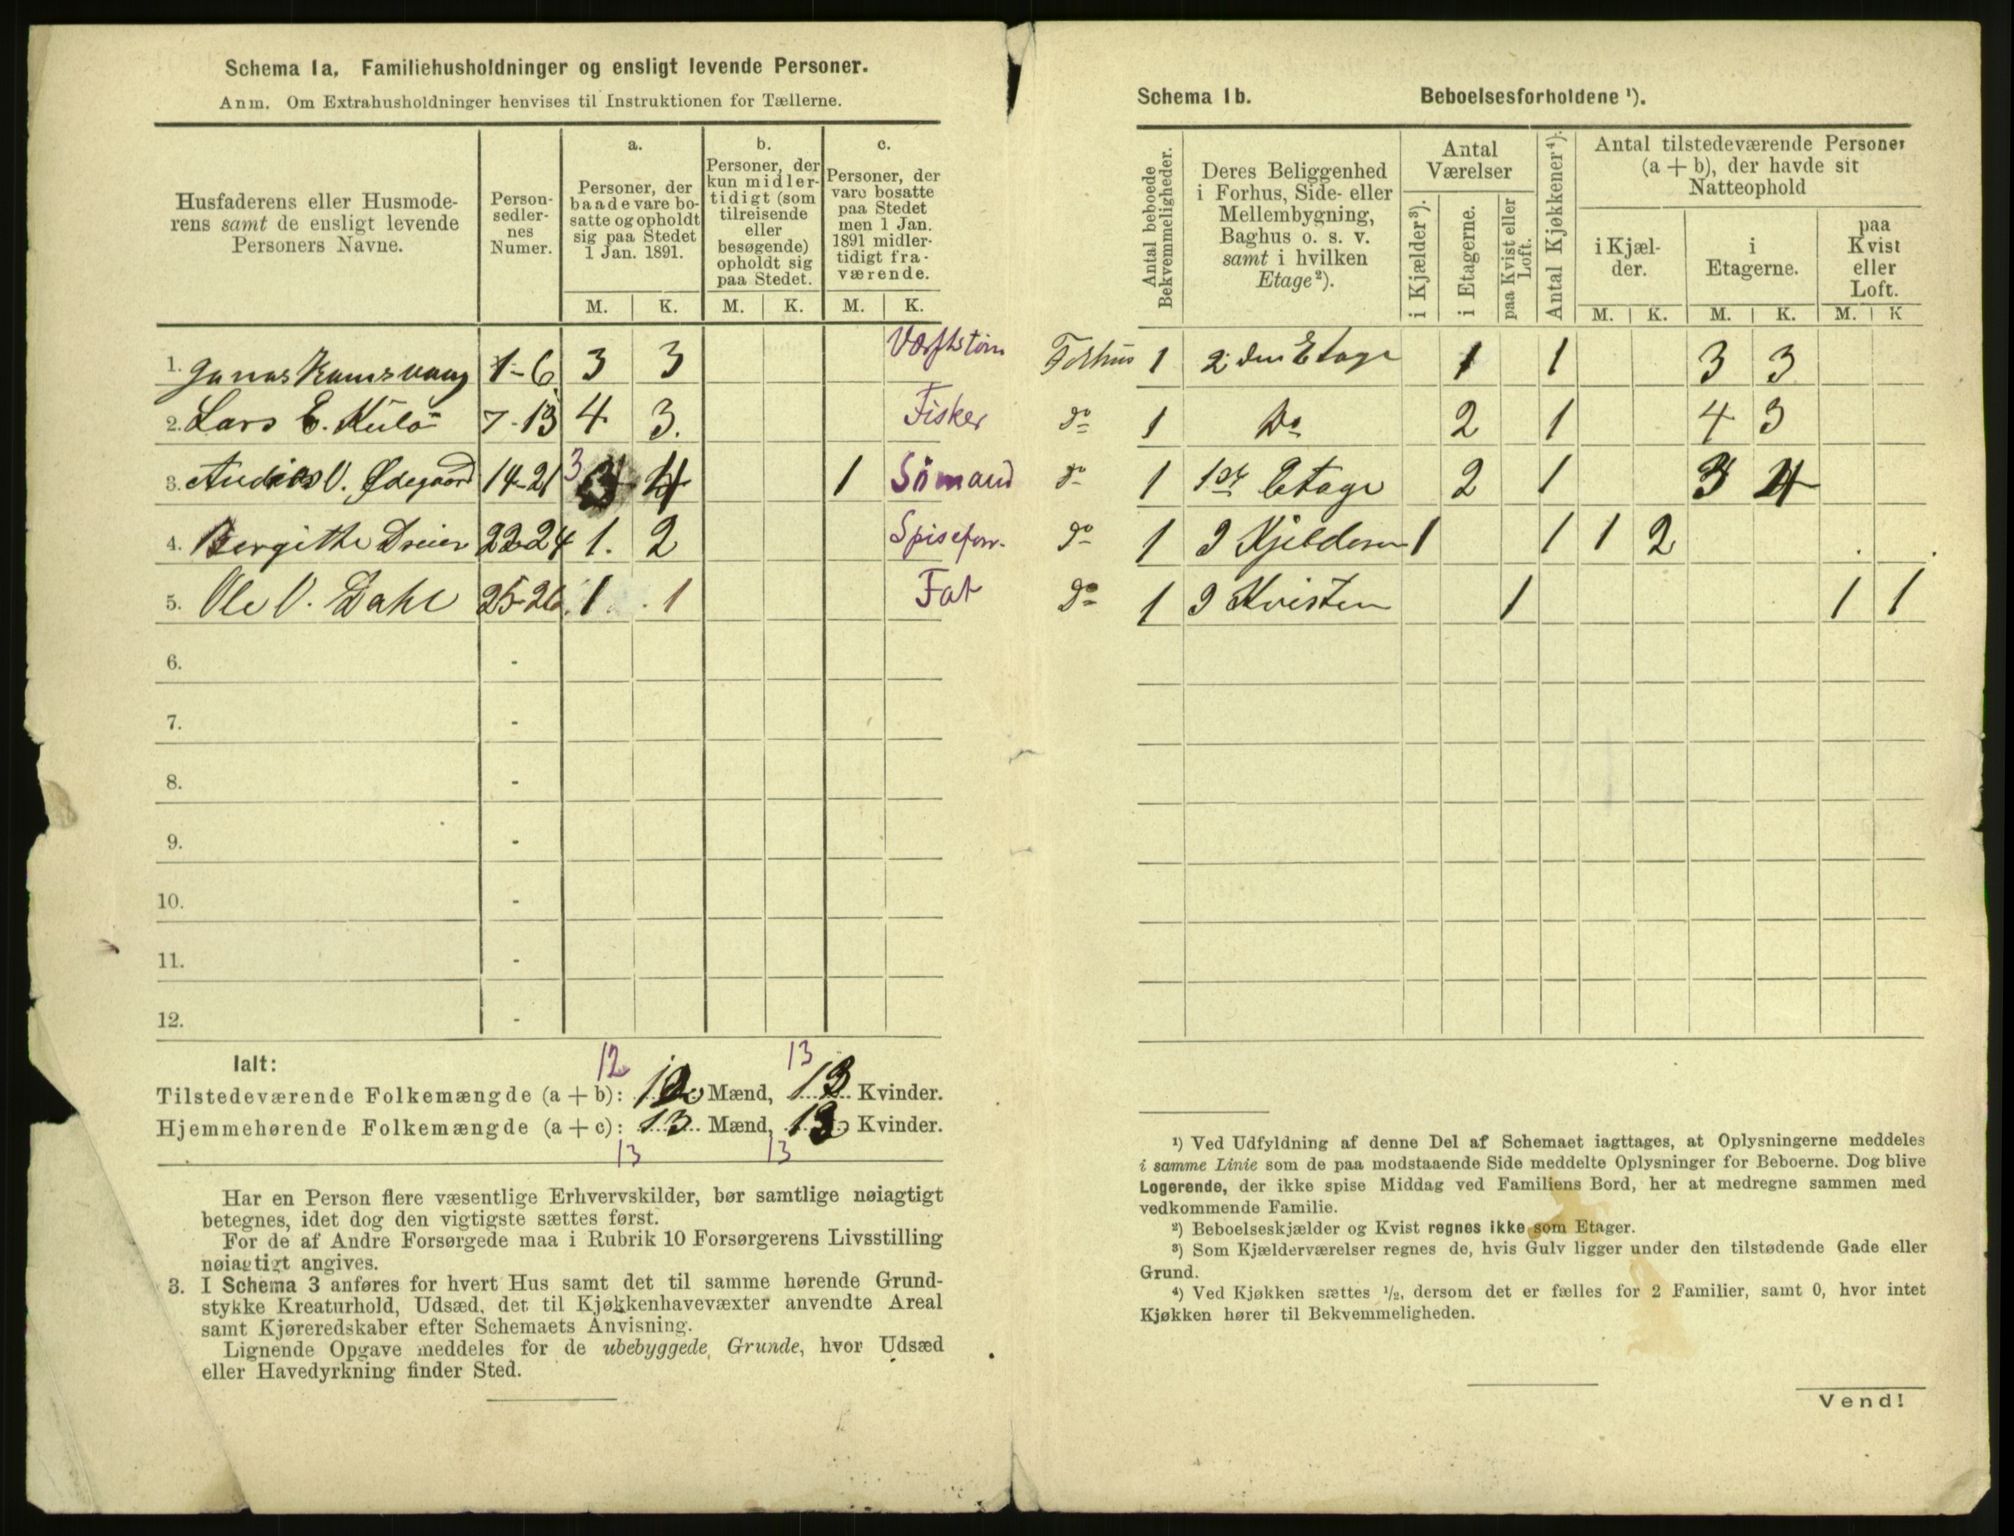 Schema 1a. Familiehusholdninger og ensligt levende Personer.
Anm. Om Extrahusholdninger henvises til Instruktionen for Tællerne.
Husfaderens eller Husmoderens samt de ensligt levende Personers Navne.
Personsedlernes Numer.
a.
Personer, der baade vare bosatte og opholdt sig paa Stedet 1 Jan. 1891.
b.
Personer, der kun midlertidigt (som tilreisende eller besøgende) opholdt sig paa Stedet.
c.
Personer, der vare bosatte paa Stedet men 1 Jan. 1891 midlertidigt fraværende.
M. K. M. K. M. K.
1. Jonas Ramsvaag 1-6 3 3 Værftstøm
2. Lars E. Kulø 7-13 4 3. Fisker
3. Andreas V. Ødegaard 14-21 3 3 4 1 Sømand
4. Bergithe Dreier 22-24 1. 2 Spiseforr.
5. Ole V. Dahl 25-26. 1 1 Fat
6. -
7. -
8. -
9. -
10. -
11. -
12. -
Ialt:
12 13
Tilstedeværende Folkemængde (a + b): 12 Mænd, 13 Kvinder.
Hjemmehørende Folkemængde (a + c): 13 Mænd, 13 Kvinder.
13 13
Har en Person flere væsentlige Erhvervskilder, bør samtlige nøiagtigt
betegnes, idet dog den vigtigste sættes først.
For de af Andre Forsørgede maa i Rubrik 10 Forsørgerens Livsstilling
nøiagtigt angives.
3. I Schema 3 anføres for hvert Hus samt det til samme hørende Grund-
stykke Kreaturhold, Udsæd, det til Kjøkkenhavevæxter anvendte Areal
samt Kjøreredskaber efter Schemaets Anvisning.
Lignende Opgave meddeles for de ubebyggede Grunde, hvor Udsæd
eller Havedyrkning finder Sted.
Schema 1b. Beboelsesforholdene ¹).
Antal beboede Bekvemmeligheder.
Deres Beliggenhed i Forhus, Side- eller Mellembygning, Baghus o. s. v. samt i hvilken Etage²).
Antal Værelser
i Kjælder³).
i Etagerne.
paa Kvist eller Loft.
Antal Kjøkkener⁴).
Antal tilstedeværende Personer (a + b), der havde sit Natteophold
i Kjælder.
i Etagerne.
paa Kvist eller Loft.
M. K. M. K. M. K
Forhus 1 2den Etage 1 1 3 3
do 1 Do 2 1 4 3
do 1 1ste Etage 2 1 3 4
do 1 I Kjelderen 1 1 1 2
do 1 I Kvisten 1 1 1
¹) Ved Udfyldning af denne Del af Schemaet iagttages, at Oplysningerne meddeles
i samme Linie som de paa modstaaende Side meddelte Oplysninger for Beboerne. Dog blive
Logerende, der ikke spise Middag ved Familiens Bord, her at medregne sammen med
vedkommende Familie.
²) Beboelseskjælder og Kvist regnes ikke som Etager.
³) Som Kjælderværelser regnes de, hvis Gulv ligger under den tilstødende Gade eller
Grund.
⁴) Ved Kjøkken sættes ½, dersom det er fælles for 2 Familier, samt 0, hvor intet
Kjøkken hører til Bekvemmeligheden.
Vend!